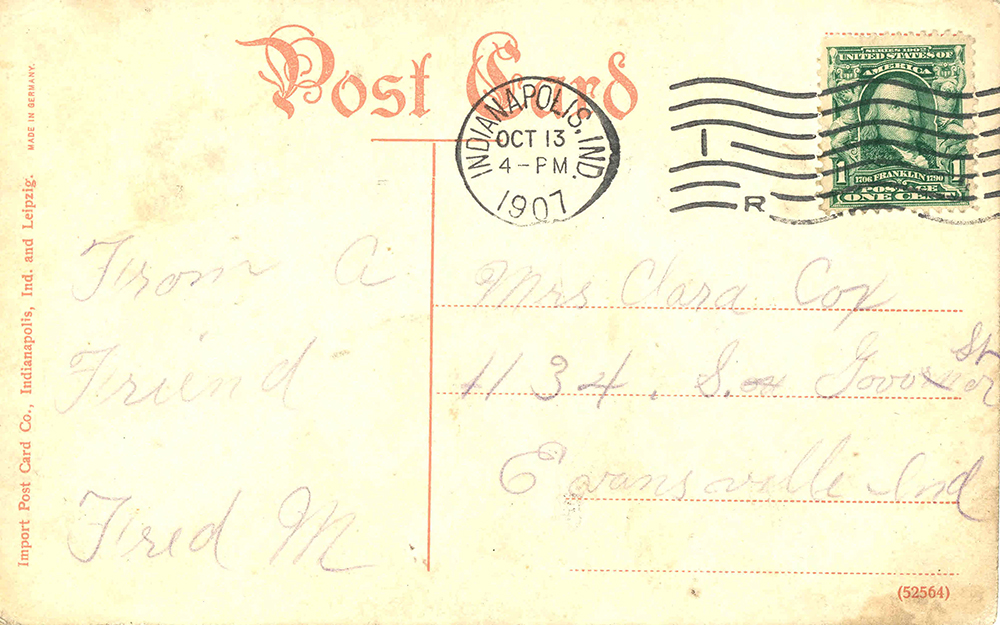 Post Card
INDIANAPOLIS, IND.
OCT 13
4-PM
1907
I
R
SERIES 1902
UNITED STATES OF
AMERICA
1 1
1706 FRANKLIN 1790
POSTAGE
ONE CENT
MADE IN GERMANY.
Import Post Card Co., Indianapolis, Ind. and Leipzig.
From A
Friend
Fred M
Mrs Clara Cox
1134. S. Governor St
Evansville Ind
(52564)